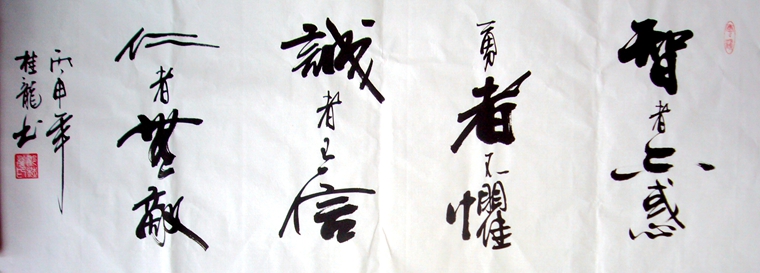 智者不惑
勇者不懼
誠者信
仁者無敵
丙申年
桂龍书